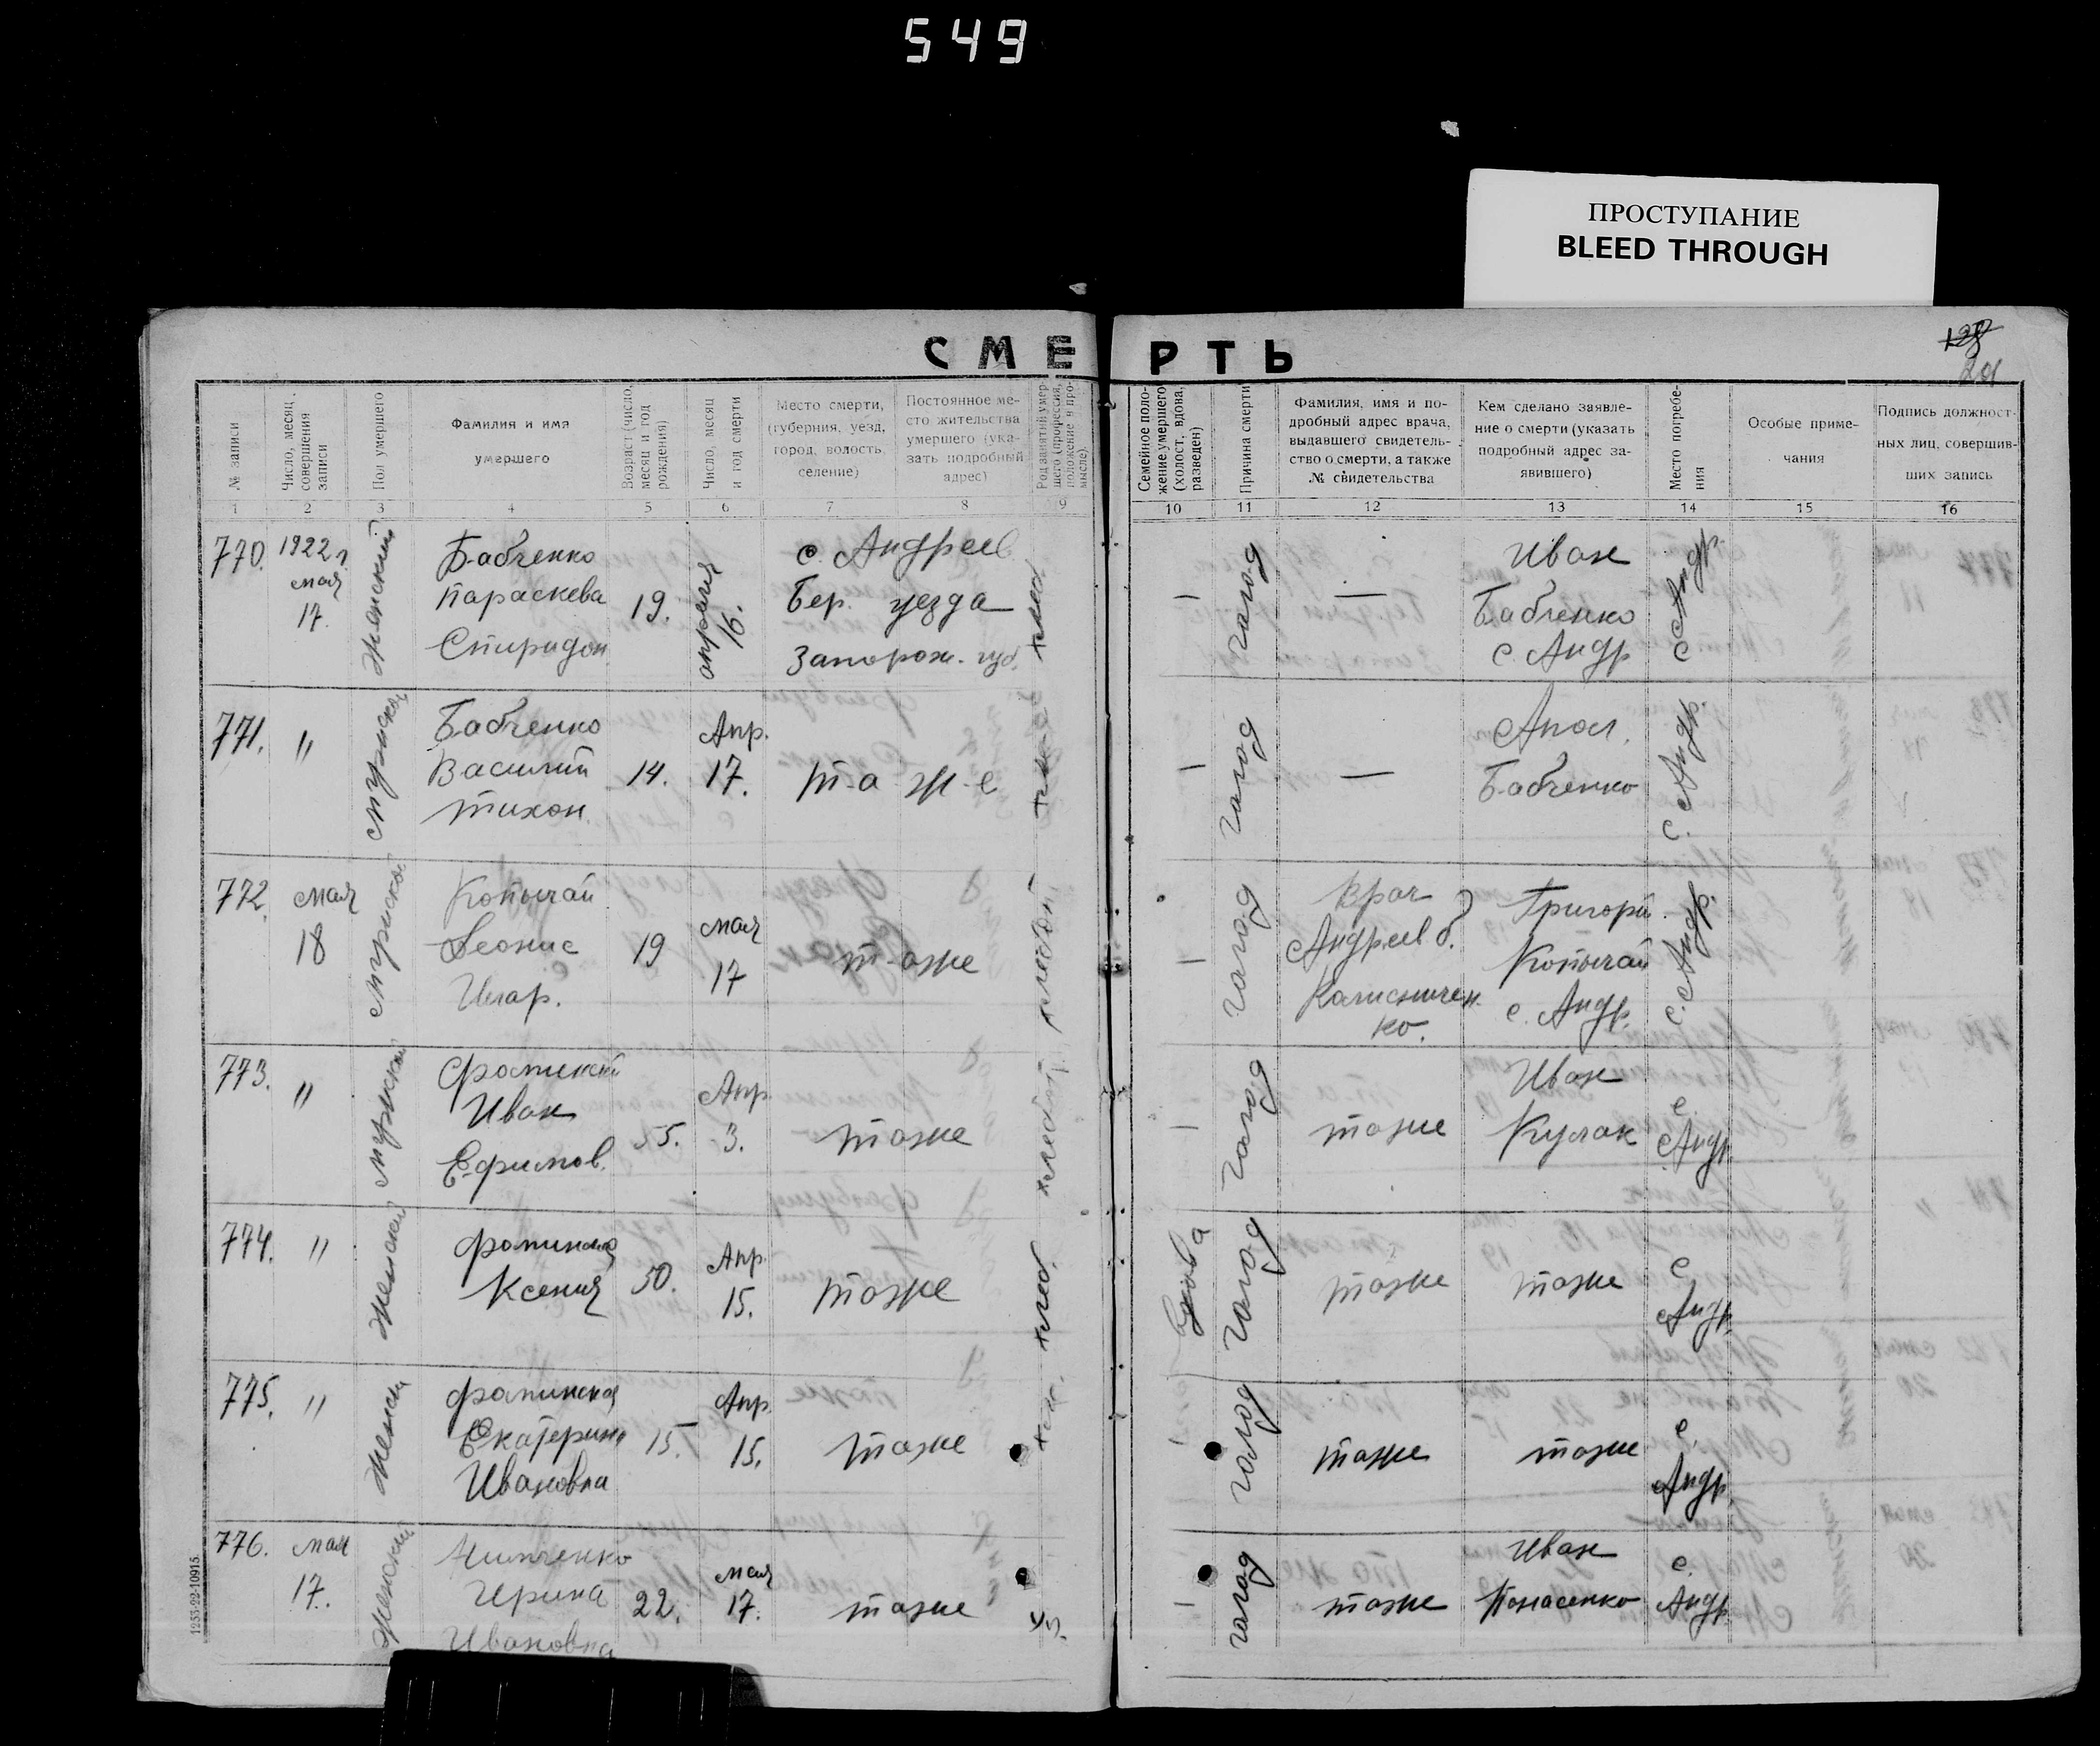 549
ПРОСТУПАНИЕ
BLEED THROUGH
СМЕРТЬ
№ записи
Число, месяц совершения записи
Пол умершего
Фамилия и имя
умершего
Возраст (число, месяц и год рождения)
Число, месяц и год смерти
Место смерти,
(губерния, уезд,
город, волость,
селение)
Постоянное ме-
сто жительства
умершего (ука-
зать подробный
адрес)
Род занятий умер-
шего (профессия,
положение в про-
мысле).
Семейное поло-
жение умершего
(холост, вдова,
разведен)
Причина смерти
Фамилия, имя и по-
дробный адрес врача,
выдавшего свидетель-
ство о смерти, а также
№ свидетельства
Кем сделано заявле-
ние о смерти (указать
подробный адрес за-
явившего)
Место погребе-
ния
Особые приме-
чания
Подпись должност-
ных лиц, совершив-
ших запись
1 2 3 4 5 6 7 8 9 10 11 12 13 14 15 16
770. 1922 г. мая 17. Женский
Бабченко
Параскева
Спиридон
19.
апреля 16.
с. Андреев
Бер. уезда
Запорож. губ.
хлеб
— голод —
Иван
Бабченко
с. Андр
с Андр.
771. " Мужской
Бабченко
Василий
Тихон.
14.
Апр. 17.
т-а ж-е
— голод —
Бабченко
с. Андр.
772. мая 18 Мужской
19
мая 17
т-оже
хлебоп.
— голод
Врач
Андреев. б.
Калиснichen-
ко.
Григорий
с. Андр.
с. Андр.
773. " Мужской
Иван
Ефимов.
55.
Апр. 3.
тоже
хлебоп.
— голод
тоже
Иван
Кулак
с. Андр.
774. " Женский
Ксения
50.
Апр. 15.
тоже
хлеб.
вдова
голод
тоже
тоже
с Андр.
775. " Женск
Екатерина
Ивановна
15.
Апр. 15.
тоже
голод
тоже
тоже
с. Андр
776. мая 17. Женский
Ирина
Ивановна
22.
мая 17.
тоже
— голод
тоже
Иван
Понасенко
с. Андр.
1253-22-10915